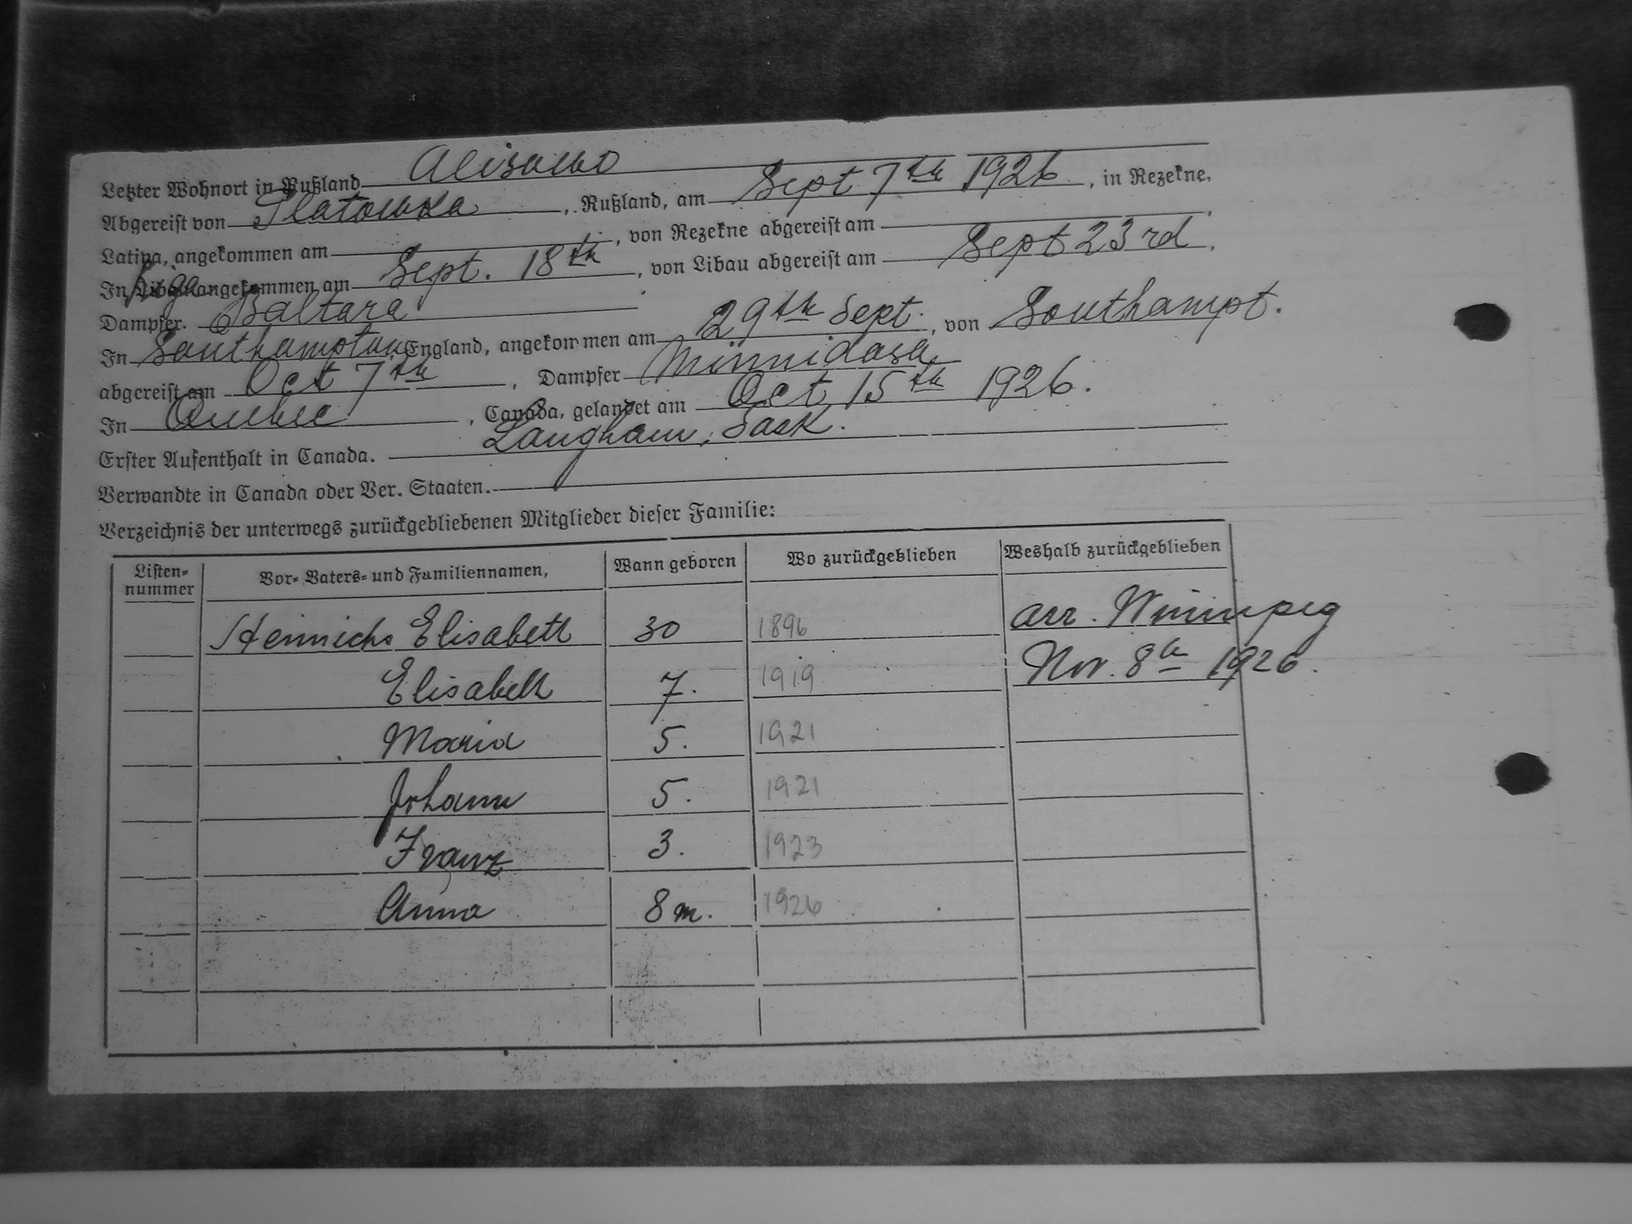 Letzter Wohnort in Rußland Alisowo
Abgereist von Platowka, Rußland, am Sept 7th 1926, in Rezekne,
Latvia, angekommen am , von Rezekne abgereist am .
In Riga angekommen am Sept. 18th, von Libau abgereist am Sept 23rd.
Dampfer. Baltara
In Southampton England, angekommen am 29th Sept., von Southampt.
abgereist am Oct 7th, Dampfer Minnidosa
In Quebec, Canada, gelandet am Oct 15th 1926.
Erster Aufenthalt in Canada. Langham, Sask.
Verwandte in Canada oder Ver. Staaten.
Verzeichnis der unterwegs zurückgebliebenen Mitglieder dieser Familie:
Listen-nummer Vor- Vaters- und Familiennamen, Wann geboren Wo zurückgeblieben Weshalb zurückgeblieben
Heinrichs Elisabeth 30 1896 arr. Winnipeg
Elisabeth 7. 1919 Nov. 8th 1926.
Maria 5. 1921
Johann 5. 1921
Franz 3. 1923
Anna 8 m. 1926